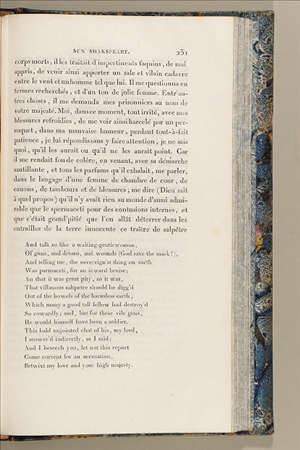 SUR SHAKSPEARE. 231
corps morts, il les traitait d'impertinents faquins, de mal
appris, de venir ainsi apporter un sale et vilain cadavre
entre le vent et un homme tel que lui. Il me questionna en
termes recherchés, et d'un ton de jolie femme. Entr'au-
tres choses, il me demanda mes prisonniers au nom de
votre majesté. Moi, dans ce moment, tout irrité, avec mes
blessures refroidies, de me voir ainsi harcelé par un per-
roquet, dans ma mauvaise humeur, perdant tout-à-fait
patience, je lui répondis sans y faire attention, je ne sais
quoi, qu'il les aurait ou qu'il ne les aurait point. Car
il me rendait fou de colère, en venant, avec sa démarche
sautillante, et tous les parfums qu'il exhalait, me parler,
dans le langage d'une femme de chambre de cour, de
canons, de tambours et de blessures; me dire (Dieu sait
à quel propos) qu'il n'y avait rien au monde d'aussi admi-
rable que le spermaceti pour des contusions internes, et
que c'était grand'pitié que l'on allât déterrer dans les
entrailles de la terre innocente ce traître de salpêtre
And talk so like a waiting-gentlewoman,
Of guns, and drums, and wounds (God save the mark!),
And telling me, the sovereign'st thing on earth
Was parmaceti, for an inward bruise;
And that it was great pity, so it was,
That villainous saltpetre should be digg'd
Out of the bowels of the harmless earth,
Which many a good tall fellow had destroy'd
So cowardly; and, but for these vile guns,
He would himself have been a soldier.
This bald unjointed chat of his, my lord,
I answer'd indirectly, as I said;
And I beseech you, let not this report
Come current for an accusation,
Betwixt my love and your high majesty.